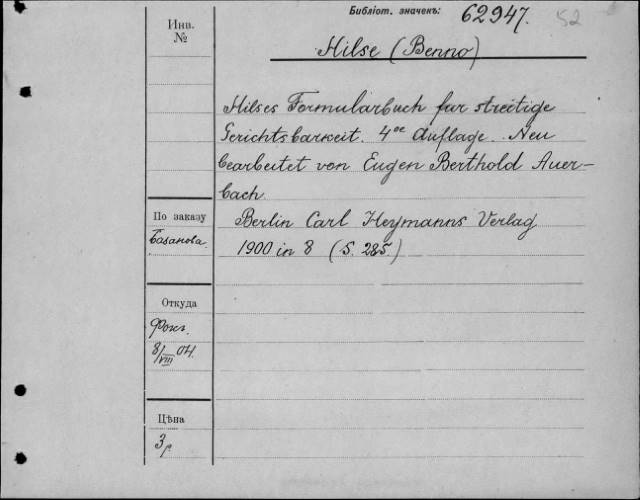 Библіот. значекъ: 62947. 52
Инв.
№
Hilse (Benno)
Hilses Formularbuch fur streitige
Gerichtsbarkeit. 4oe Auflage. Neu
bearbeitet von Eugen Berthold Auer-
bach.
По заказу
Базанова.
Berlin Carl Heymanns Verlag
1900 in 8 (S. 285.)
Откуда
Фокг.
8/VIII 04.
Цѣна
3р